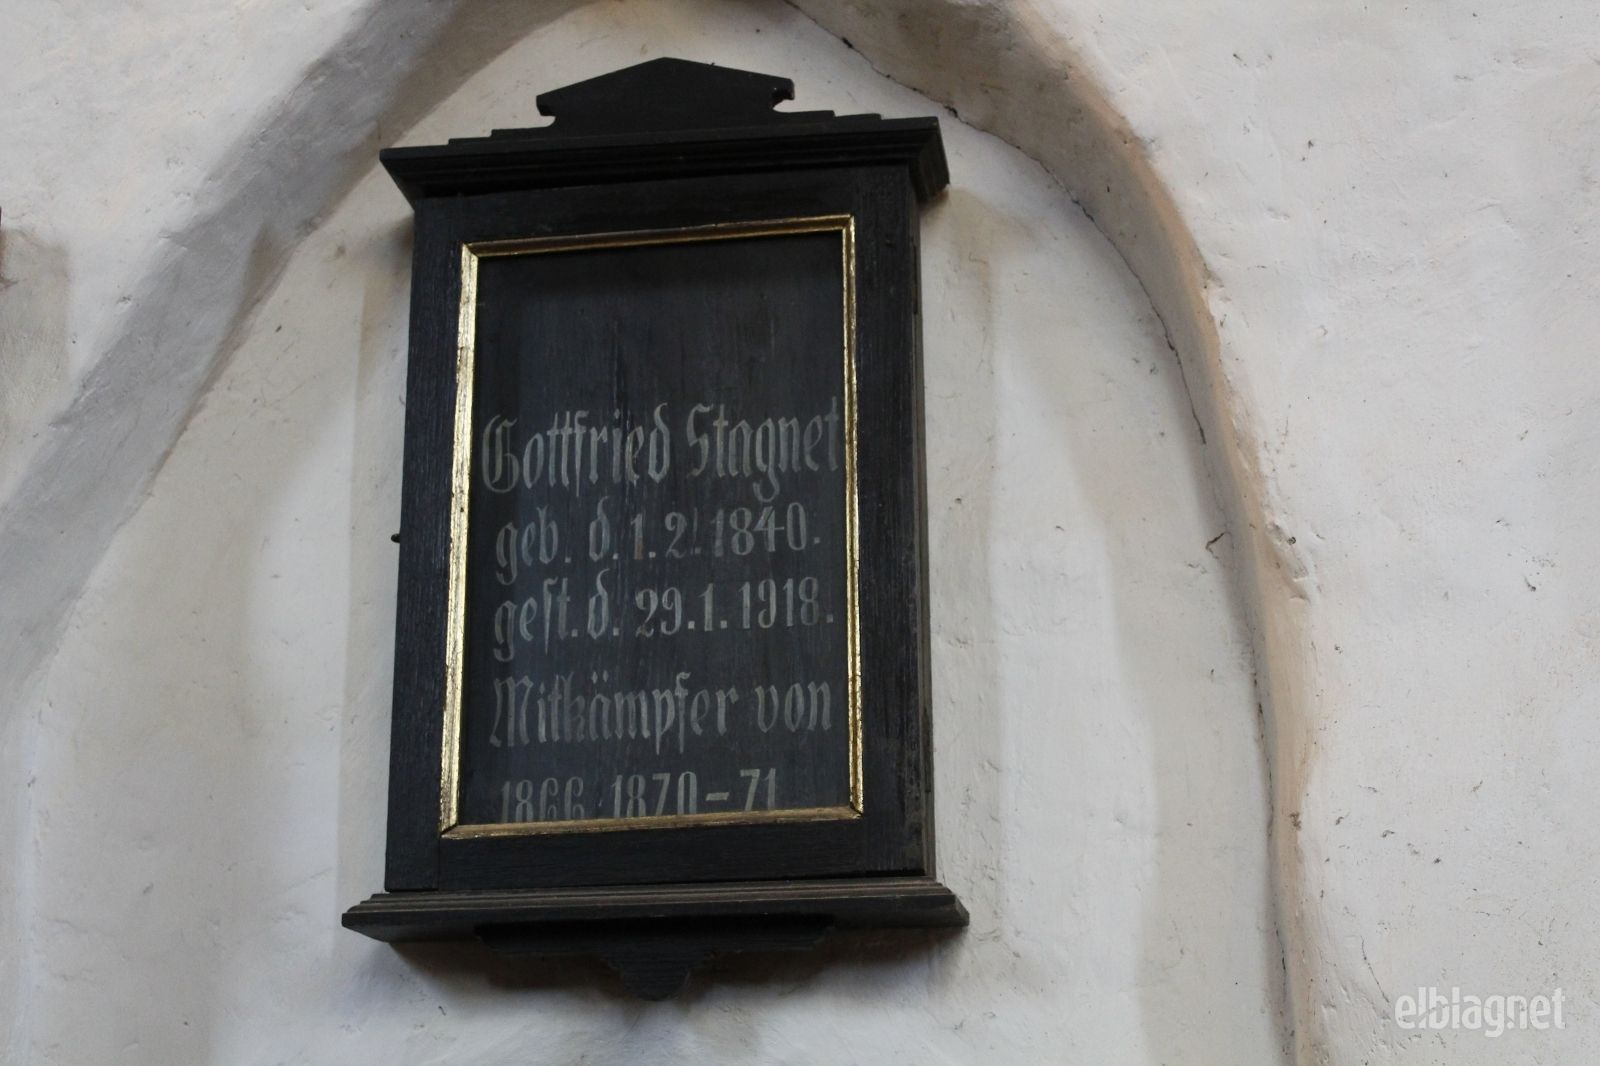 Gottfried Stagnet
geb. d. 1. 2. 1840.
gest. d. 29. 1. 1918.
Mitkämpfer von
1866 1870-71
elblagnet